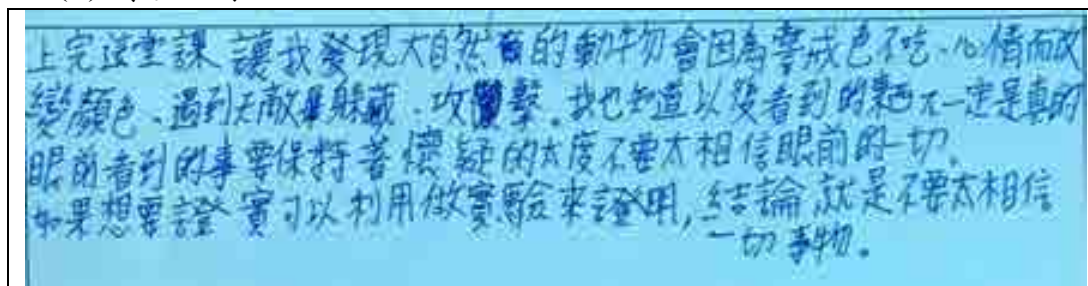 上完這堂課 讓我發現大自然有的動牛勿會因為警戒色不吃、心情而改
變顏色、遇到天敵躲藏、攻擊。我也知道以後看到的東西不一定是真的
眼前看到的事要保持著懷疑的太度不要太相信眼前的一切。
如果想要證實可以利用做實驗來證明,結論就是不要太相信
一切事物。